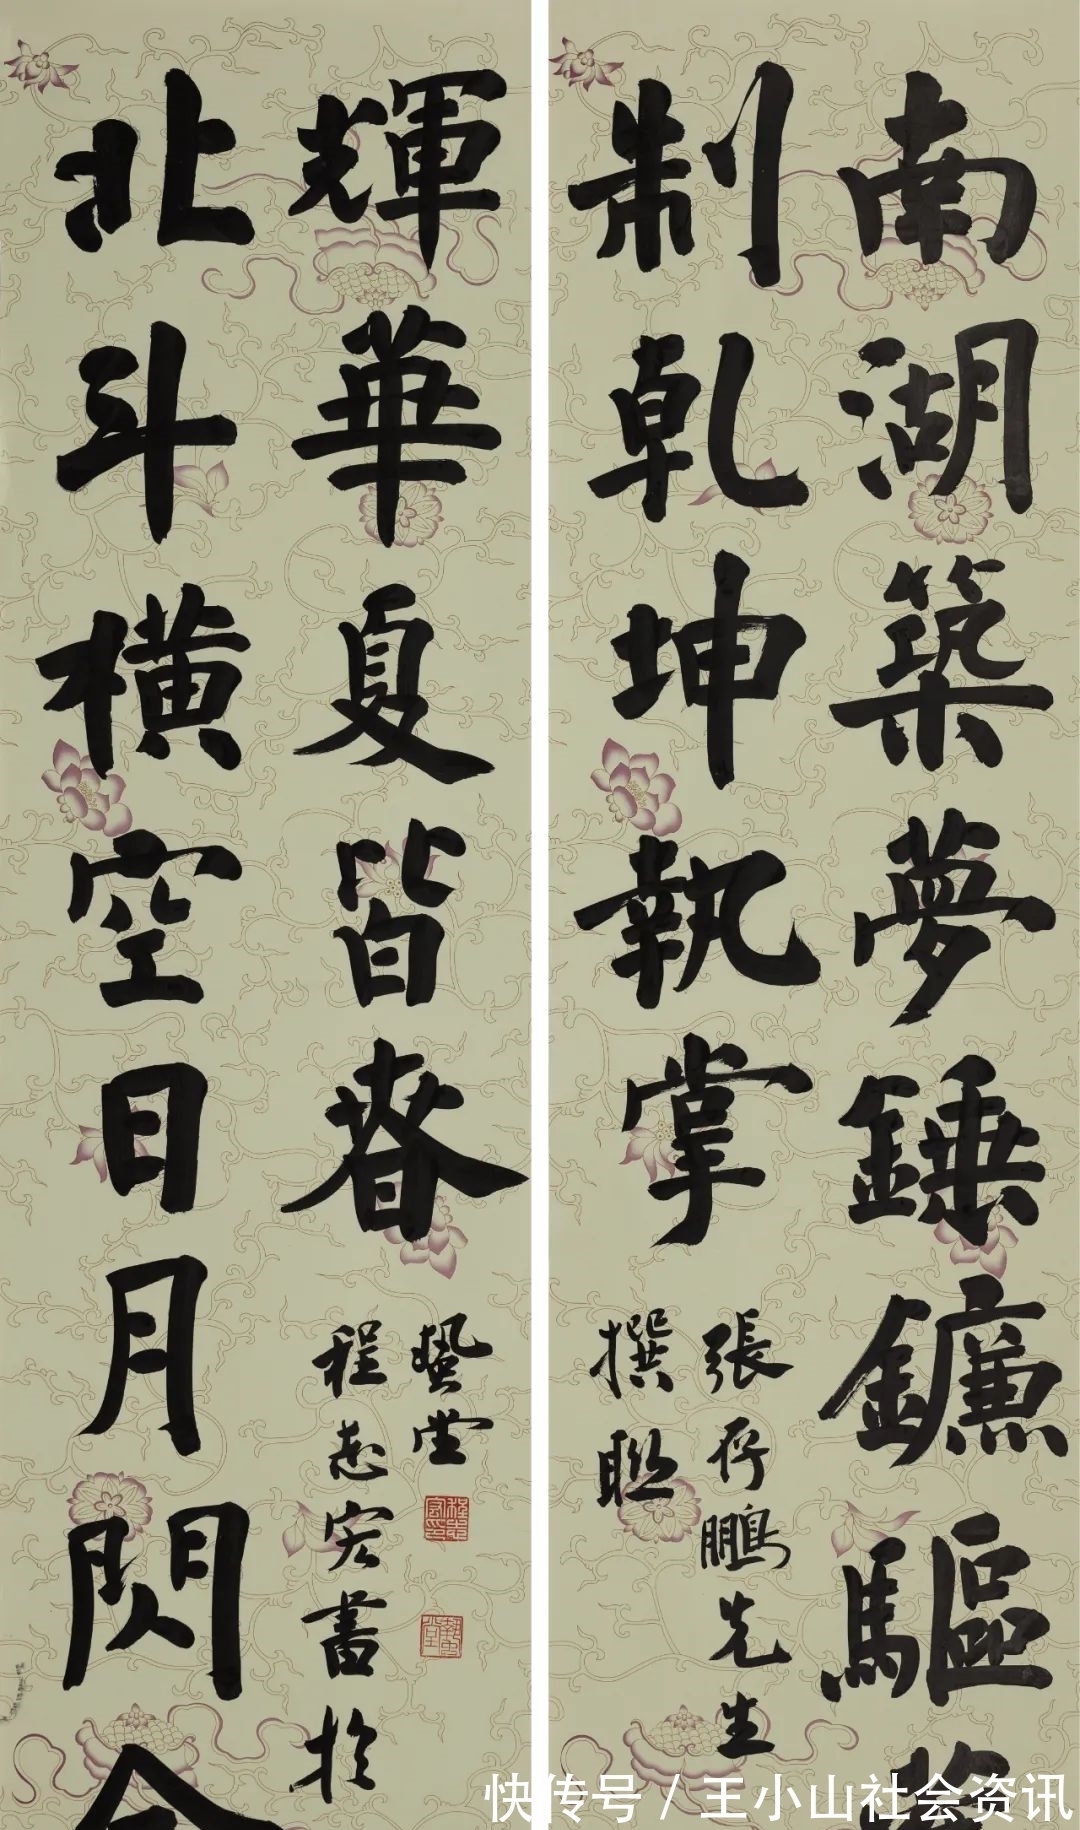 南湖築夢錘鐮驅
制乾坤執掌
張存鵬先生
撰聯
北斗橫空日月閃
輝華夏皆春
程志宏書於
堂
快传号 / 王小山社会资讯